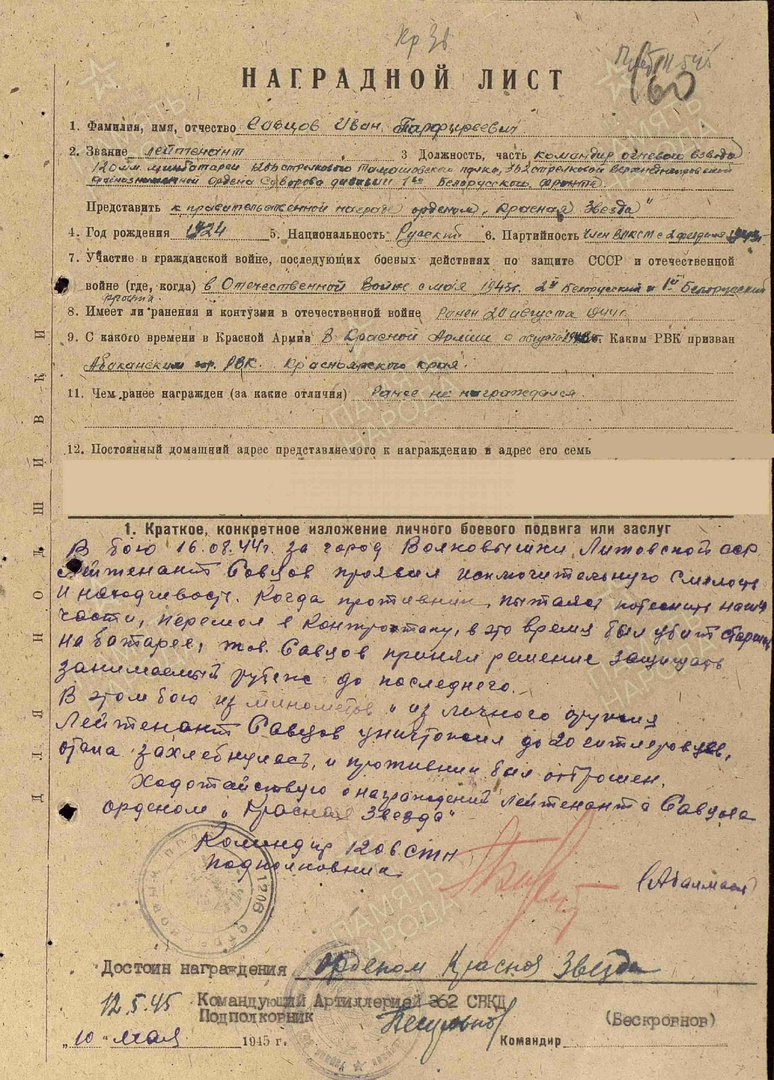 Кр Зв
160
НАГРАДНОЙ ЛИСТ
1. Фамилия, имя, отчество Савцов Иван Парфиреевич
2. Звание лейтенант 3 Должность, часть командир огневого взвода
120 мм. минбатареи 1206 стрелкового полка, 362 стрелковой Верхнеднепровской
краснознаменной ордена Суворова дивизии 1го Белорусского фронта
Представить к правительственной награде орденом „Красная Звезда"
4. Год рождения 1924 5. Национальность Русский 6. Партийность член ВЛКСМ с 2 февраля
7. Участие в гражданской войне, последующих боевых действиях по защите СССР и отечественной
войне (где, когда) в Отечественной Войне с мая 1943г. 2й Белорусский и 1й Белорусский
фронта
8. Имеет ли ранения и контузии в отечественной войне Ранен 20 августа 1944г.
9. С какого времени в Красной Армии В Красной Армии с августа Каким РВК призван
Абаканским гор. РВК. Красноярского края.
11. Чем ранее награжден (за какие отличия) Ранее не награждался
12. Постоянный домашний адрес представляемого к награждению и адрес его семь
ДЛЯ ПОДШИВКИ
1. Краткое, конкретное изложение личного боевого подвига или заслуг
В бою 16.08.44г. за город Волковышки, Литовской сср
Лейтенант Савцов проявил исключительную смелость
и находчивость. Когда противник, пытаясь потеснить наши
части, перешел в контратаку, в это время был убит старший
на батарее, тов. Савцов принял решение защищать
занимаемый рубеж до последнего.
В этом бою из минометов и из личного оружия
Лейтенант Савцов уничтожил до 20 гитлеровцев,
атака захлебнулась, и противник был отброшен.
Ходотайствую о награждений лейтенанта Савцова
орденом „Красная Звезда"
Командир 1206 СТП
Подполковник
Достоин награждения Орденом Красная Звезда
12.5.45 Командующий Артиллерией 362 СВКД
Подполковник (Бескровнов)
„10" мая 1945 г. Командир
ПАМЯТЬ НАРОДА